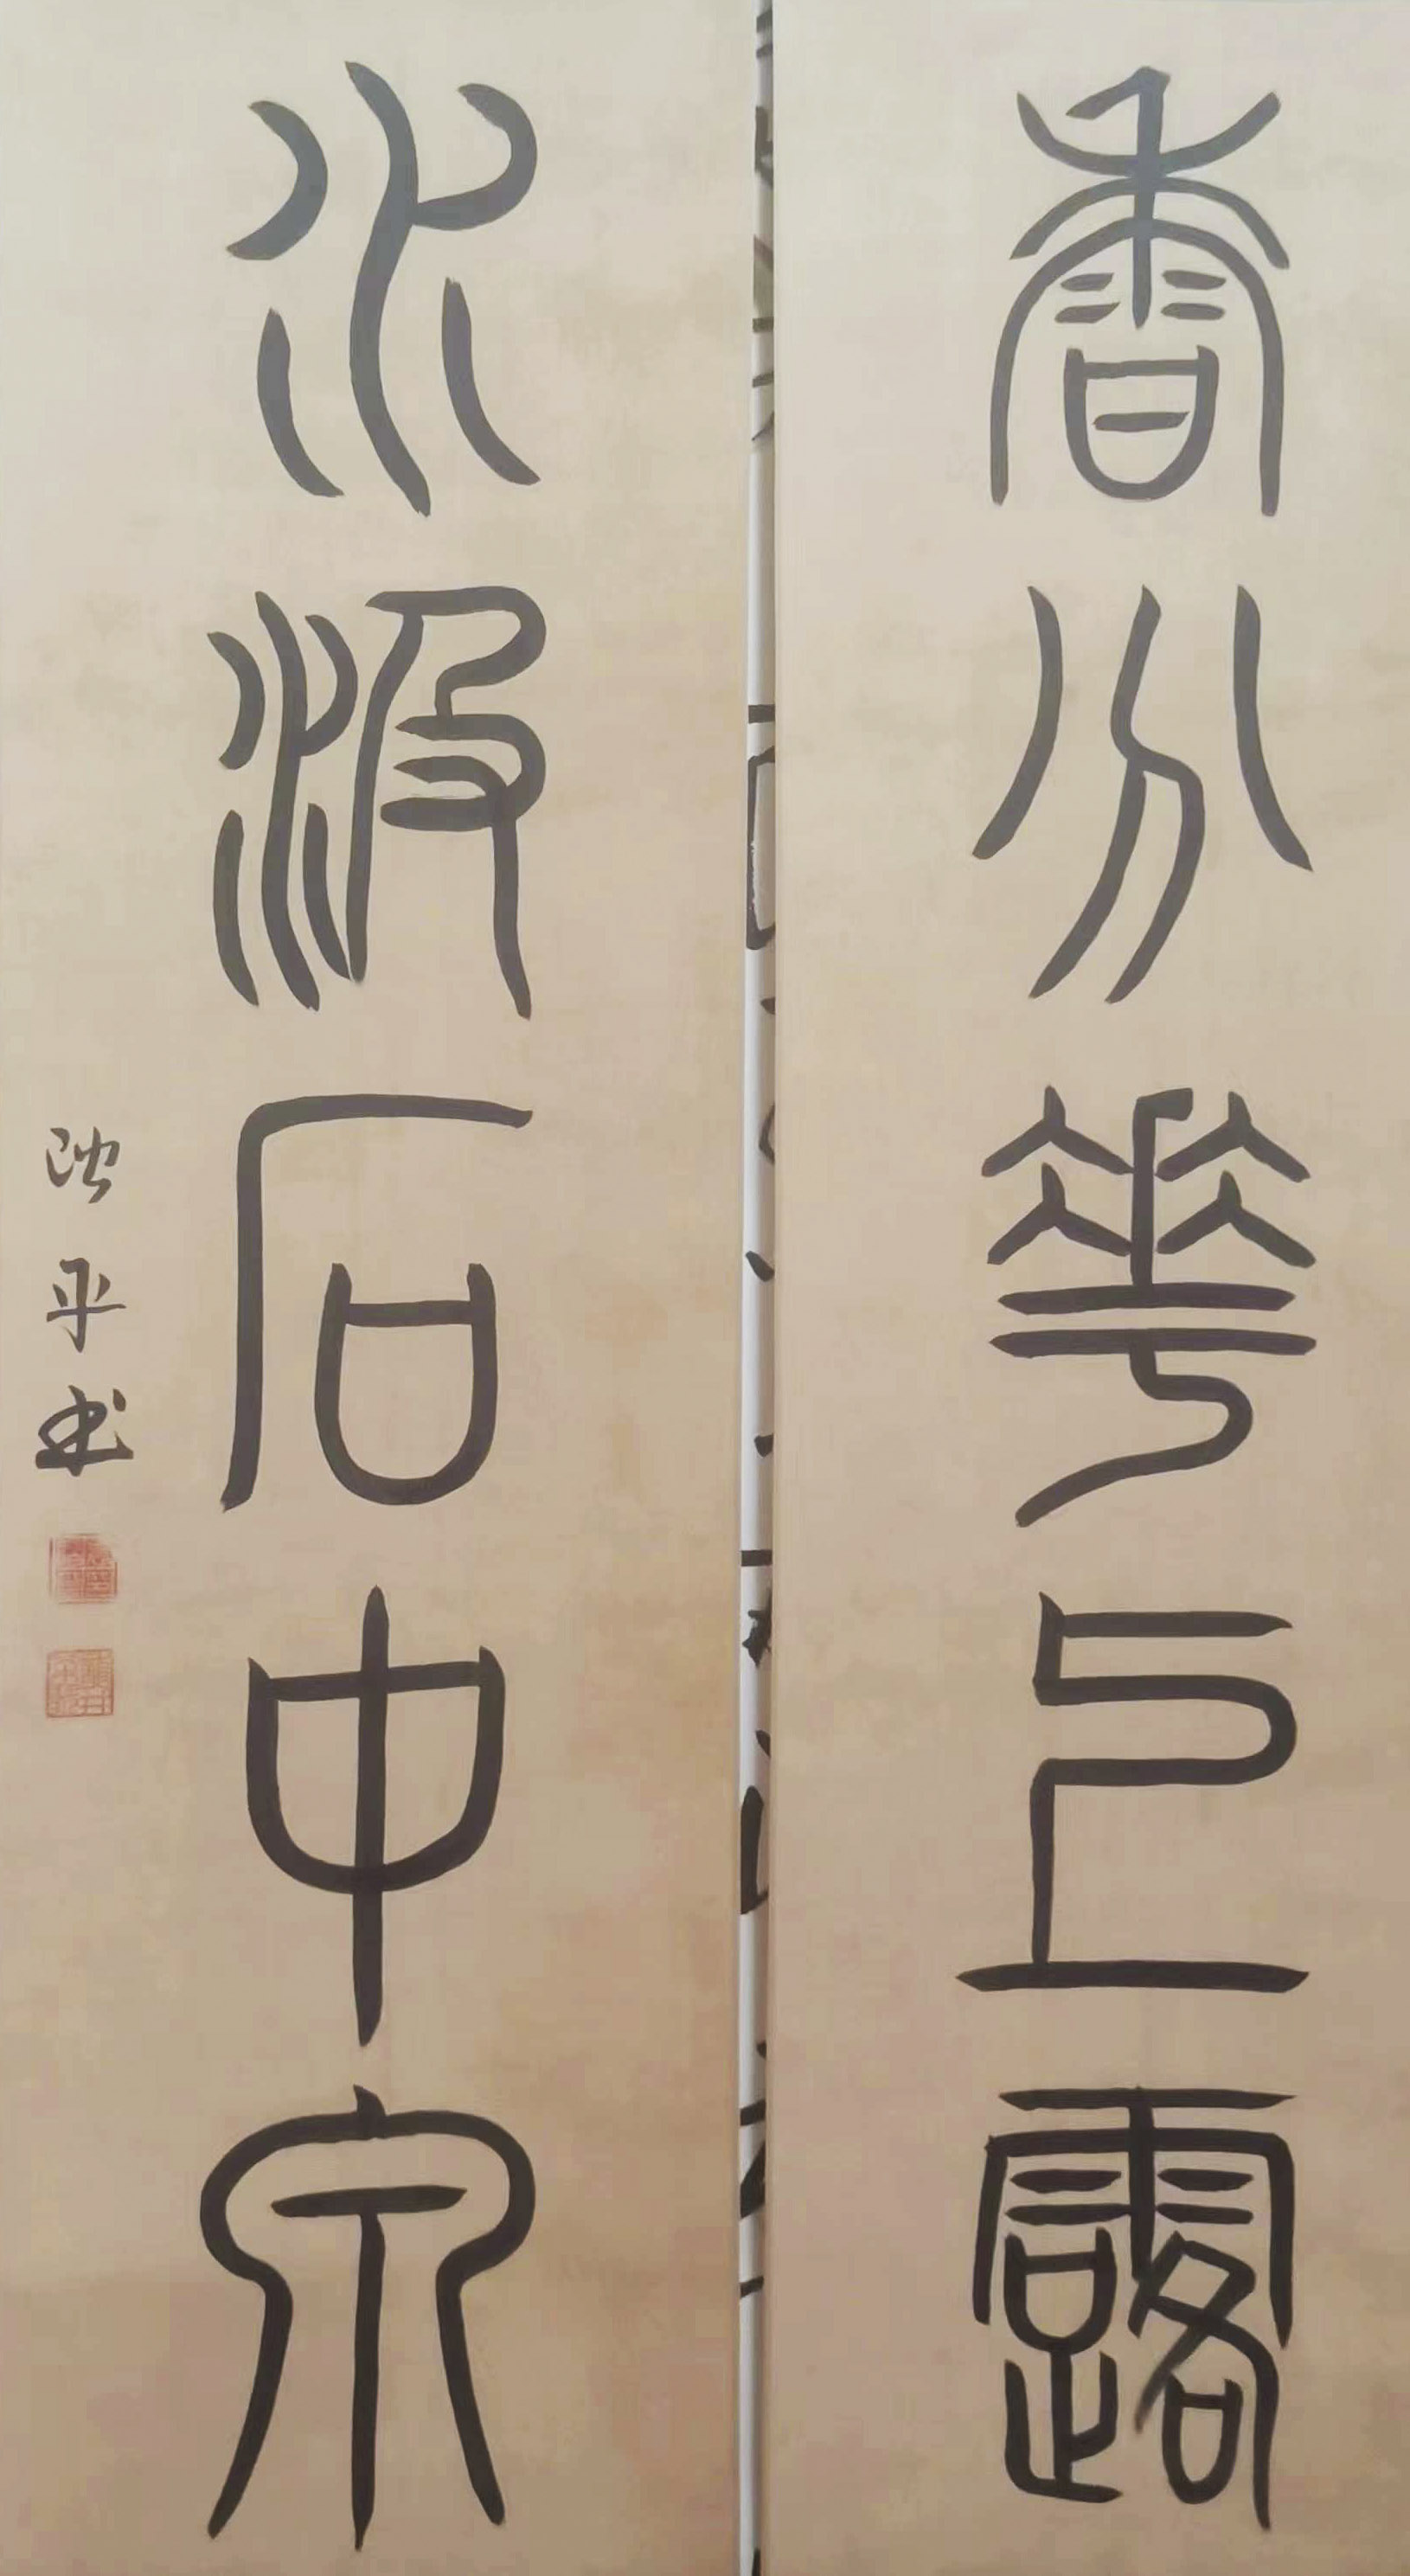 香分花上露
水汲石中泉
沙平书